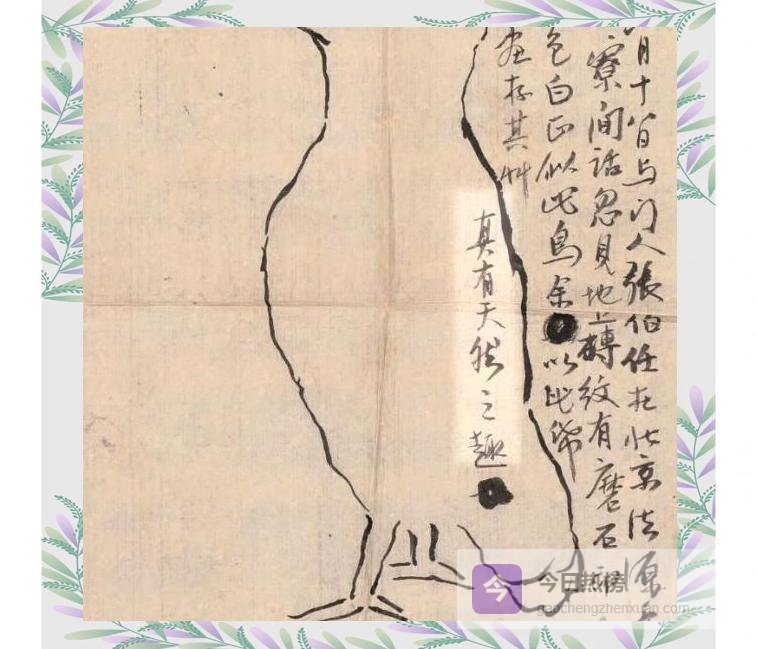 月十八日与门人張伯任在北京法源
寮間話忽見地上磚紋有磨石
色白正似此鳥余以此帋
画存其艸
真有天然之趣
今 今日热榜
gaochengzhenxuan.com